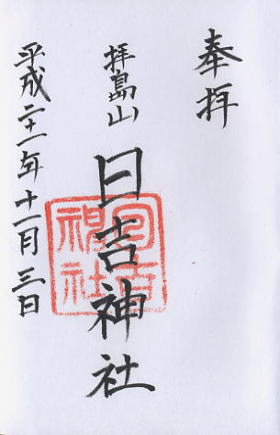 奉拝
拝島山
日吉神社
日吉神社
平成二十一年十一月三日